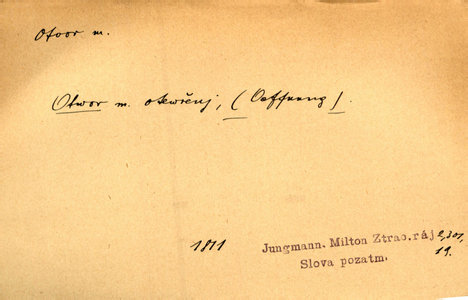 Otvor m.
Otwor m. otewřenj, (Oeffnung).
1811 Jungmann. Milton Ztrac. ráj 2, 301,
Slova pozatm. 19.